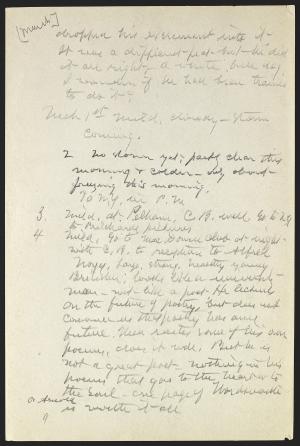 [March]
dropped his excrement into it -
It was a different pot - but - he did
it all right - a white bull dog
I wonder if he had been trained
to do it?
Mch 1st Mild, cloudy - storm
coming.
2 No storm yet; partly clear this
morning & colder - only about
freezing this morning.
To N.Y. in P.M.
3. Mild, at Pelham, C.B. and I go to N.Y
to Pritchard's pictures
4 Mild, Go to Club at night -
with C.B. to reception to Alfred
Noyes, large, strong, healthy young
Britisher; looks like a business-
man - not like a poet. He lectures
on the future of poetry, but does not
convince us that poetry has any
future. Then recites some of his own
poems, does it well. But he is
not a great poet - nothing in his
poems that goes to the heart or to
the soul - one page of Wordsworth
or Arnold
is worth it all